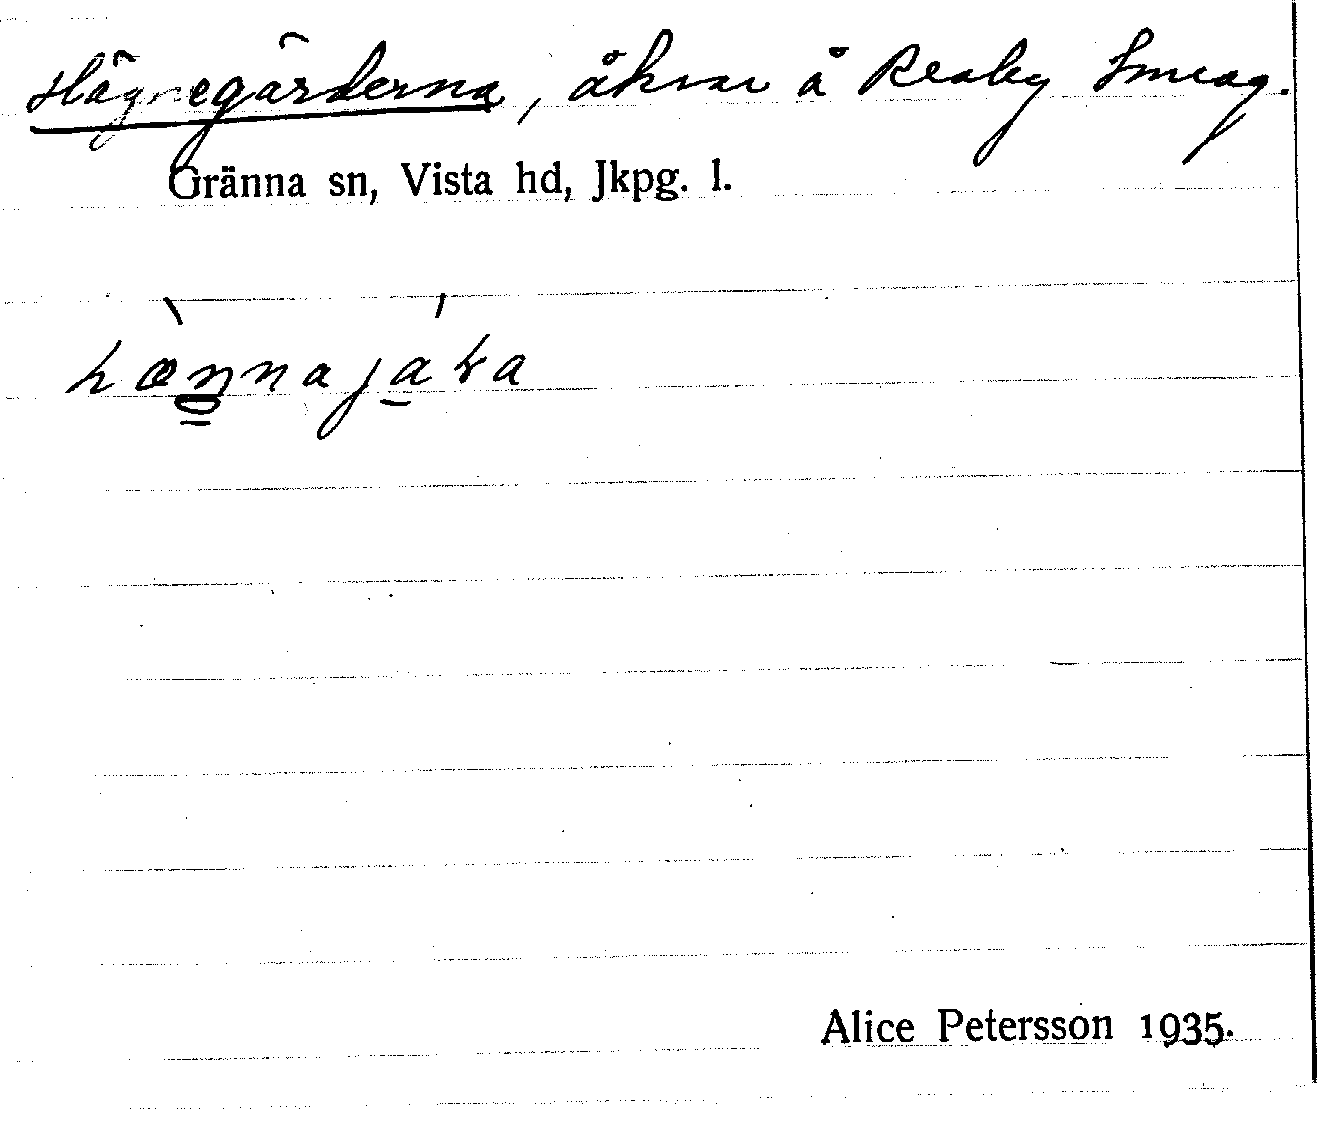 Hägnegärderna, åkrar å Reaby Smeag.
Gränna sn, Vista hd, Jkpg. l.
Alice Petersson 1935.